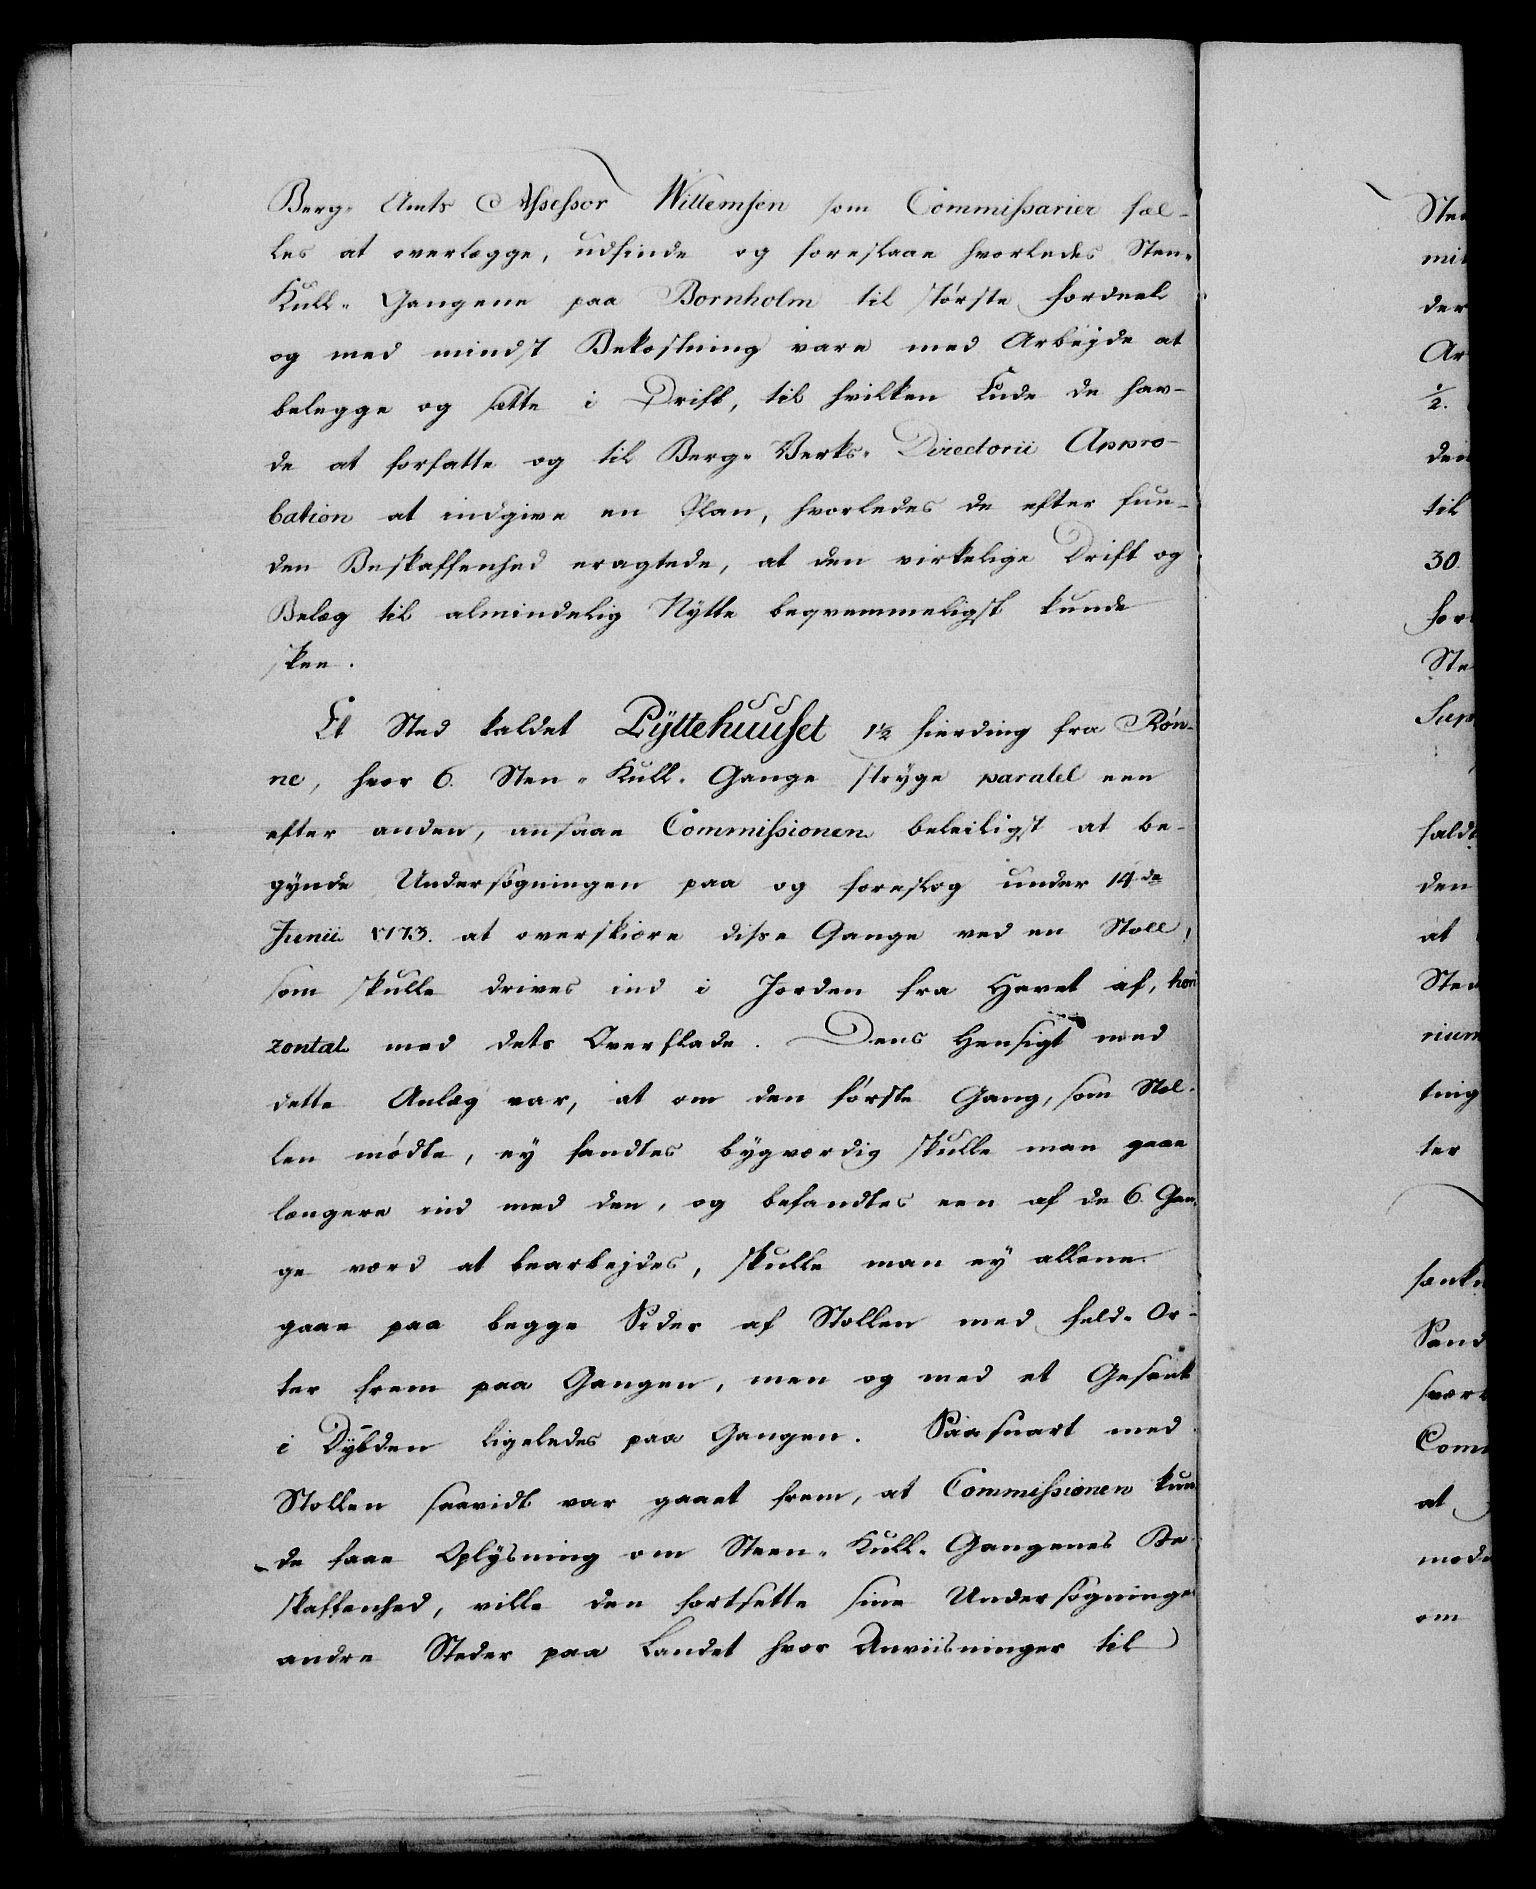 Berg- Amts Assessor Willemsen som Commissarier fæl-
les at overlægge, udfinde og foreslaae hvorledes Steen-
Kull- Gangene paa Bornholm til største Fordeel
og med mindst Bekostning vare med Arbejde at
belegge og sette i Drift, til hvilken Ende de hav-
de at forfatte og til Berg- Verks- Directorii Appro-
bation at indgive en Plan, hvorledes de efter fun-
den Beskaffenhed eragtede, at den virkelige Drift og
Belæg til almindelig Nytte beqvemmeligst kunde
skee.
Et Sted kaldet Pÿttehuuset 1½ Fierding fra Røn-
ne, hvor 6. Sten- Kull- Gange stryge paralel een
efter anden, ansaae Commissionen beleiligst at be-
gynde Undersøgningen paa og foreslog under 14de
Junii 1773. at overskiære disse Gange ved en Stoll,
som skulle drives ind i Jorden fra Havet af, hori
zontal med dets Overflade. Dens Hensigt med
dette Anlæg var, at om den første Gang, som Stol-
len mødte, ey fandtes bygværdig skulle man gaae
længere ind med den, og befandtes een af de 6 Gan-
ge værd at bearbejdes, skulle man ey allene
gaae paa begge Sider af Stollen med Feld- Or-
ter frem paa Gangen, men og med et Gesenk
i Dÿbden ligeledes paa Gangen. Saasnart med
Stollen saavidt var gaaet frem, at Commissionen kun
de faae Oplysning om Steen- Kull- Gangenes Be-
skaffenhed, ville den fortsette sine Undersøgninger
andre Steder paa Landet hvor Anviisninger til
Ste
mi
der
Ar
½.
den
til
30.
for
Ste
Sup
faldt
den
at
Ste
rium
ting
ter
sænk
Sand
svær
Com
at
mod
om